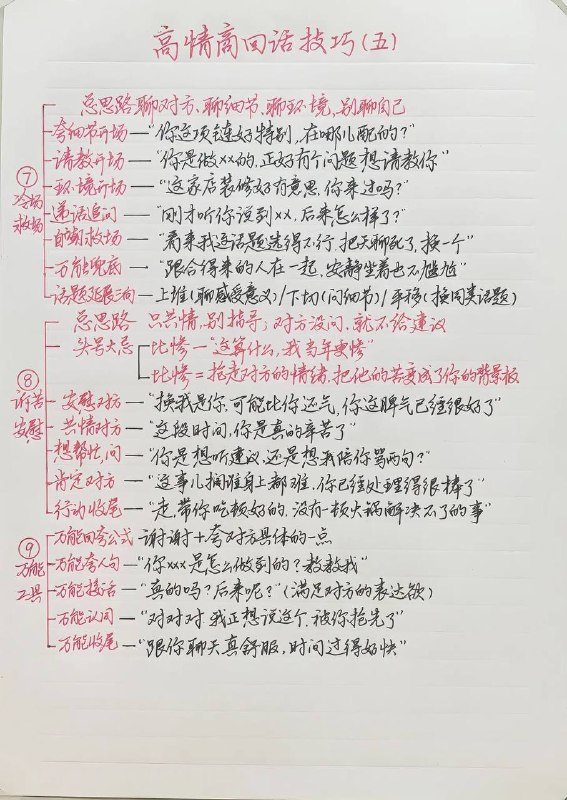 高情商回话技巧(五)
⑦冷场救场
总思路 聊对方、聊细节、聊环境，别聊自己
夸细节开场—"你这项链好特别，在哪儿配的？"
请教开场—"你是做××的，正好有个问题想请教你"
环境开场—"这家店装修好有意思，你来过吗？"
递话追问—"刚才听你说到××，后来怎么样了？"
自嘲救场—"看来我这话题选得不行，把天聊死了，换一个"
万能兜底—"跟合得来的人在一起，安静坐着也不尴尬"
话题延展三问—上堆(聊感受意义)/下切(问细节)/平移(换同类话题)
⑧诉苦安慰
总思路 只共情，别指导；对方没问，就不给建议
头号大忌 比惨—"这算什么，我当年更惨"
比惨=抢走对方的情绪，把他的苦变成了你的背景板
安慰对方—"换我是你，可能比你还气，你这脾气已经很好了"
共情对方—"这段时间，你是真的辛苦了"
想帮忙，问—"你是想听建议，还是想我陪你骂两句？"
肯定对方—"这事儿搁谁身上都难，你已经处理得很棒了"
行动收尾—"走，带你吃顿好的，没有一顿火锅解决不了的事"
⑨万能工具
万能回夸公式—谢谢+夸对方具体的一点
万能夸人句—"你xxx是怎么做到的？教教我"
万能接话—"真的吗？后来呢？"(满足对方的表达欲)
万能认同—"对对对，我正想说这个，被你抢先了"
万能收尾—"跟你聊天真舒服，时间过得好快"